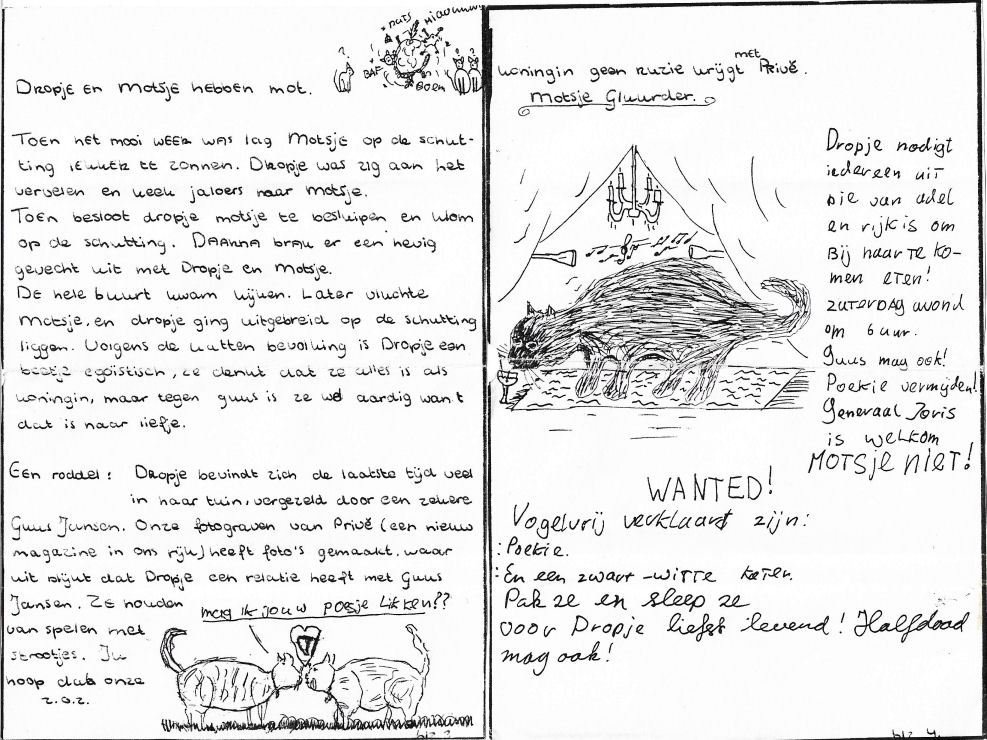 nats
miauwww
BAF
BOEM
Dropje en Motsje hebben mot.
Toen het mooi weer was lag Motsje op de schut-
ting lekker te zonnen. Dropje was zig aan het
vervelen en keek jaloers naar Motsje.
Toen besloot dropje motsje te besluipen en klom
op de schutting. DAARNA brak er een hevig
gevecht uit met Dropje en Motsje.
De hele buurt kwam kijken. Later vluchte
Motsje, en dropje ging uitgebreid op de schutting
liggen. Volgens de katten bevolking is Dropje een
beetje egoistisch, ze denkt dat ze alles is als
koningin, maar tegen guus is ze wel aardig want
dat is haar liefje.
Een roddel: Dropje bevindt zich de laatste tijd veel
in haar tuin, vergezeld door een zekere
Guus Jansen. Onze fotograven van Privé (een nieuw
magazine in ons rijk) heeft foto's gemaakt, waar
uit blijkt dat Dropje een relatie heeft met Guus
Jansen. Ze houden
van spelen met
strootjes. Ik
hoop dat onze
mag ik jouw poesje likken??
z.o.z.
blz 3
koningin geen ruzie krijgt met Privé.
Motsje Gluurder.
Dropje nodigt
iedereen uit
die van adel
en rijk is om
Bij haar te ko-
men eten!
zaterdag avond
om 6 uur.
Guus mag ook!
Poekie vermijden!
Generaal Joris
is welkom
Motsje niet!
WANTED!
Vogelvrij verklaard zijn:
: Poekie.
: En een zwart-witte kater.
Pak ze en sleep ze
voor Dropje liefst levend! Halfdood
mag ook!
blz 4.